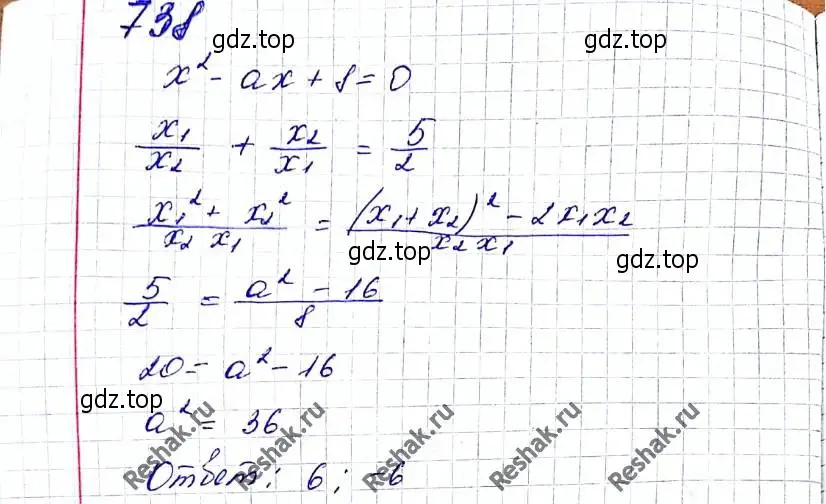 738
gdz.top gdz.top
x² - ax + 8 = 0
x₁/x₂ + x₂/x₁ = 5/2
(x₁² + x₂²)/(x₂ x₁) = ((x₁ + x₂)² - 2x₁x₂)/(x₂ x₁)
gdz.top gdz.top
5/2 = (a² - 16)/8
20 = a² - 16
gdz.top
a² = 36
Ответ: 6; -6
gdz.top
Reshak.ru Reshak.ru Reshak.ru Reshak.ru Reshak.ru